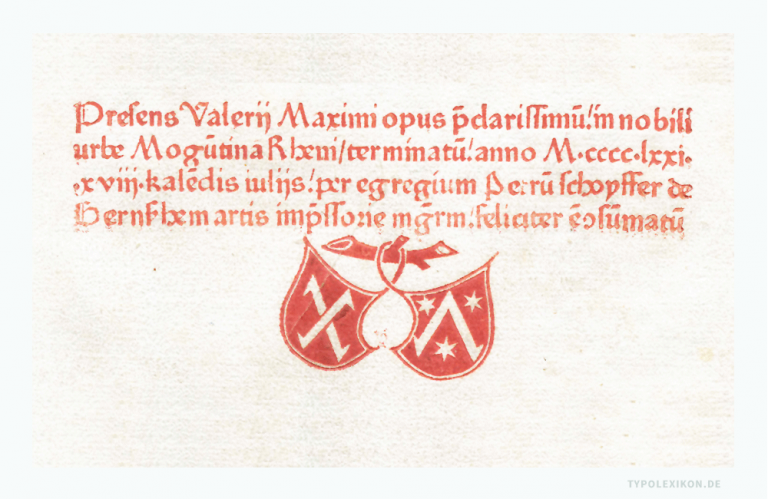 Preſens Valerij Maximi opus p̄clariſſimū/in nobili
urbe Mogūtina Rheni/terminatū/anno M·cccc·lxxi·
·xviii·kalēdis iulijs/per egregium Petrū ſchoyffer de
Gernſhem artis imp̄ſſorie mgr̄m/feliciter ēↄſūmatū
TYPOLEXIKON.DE